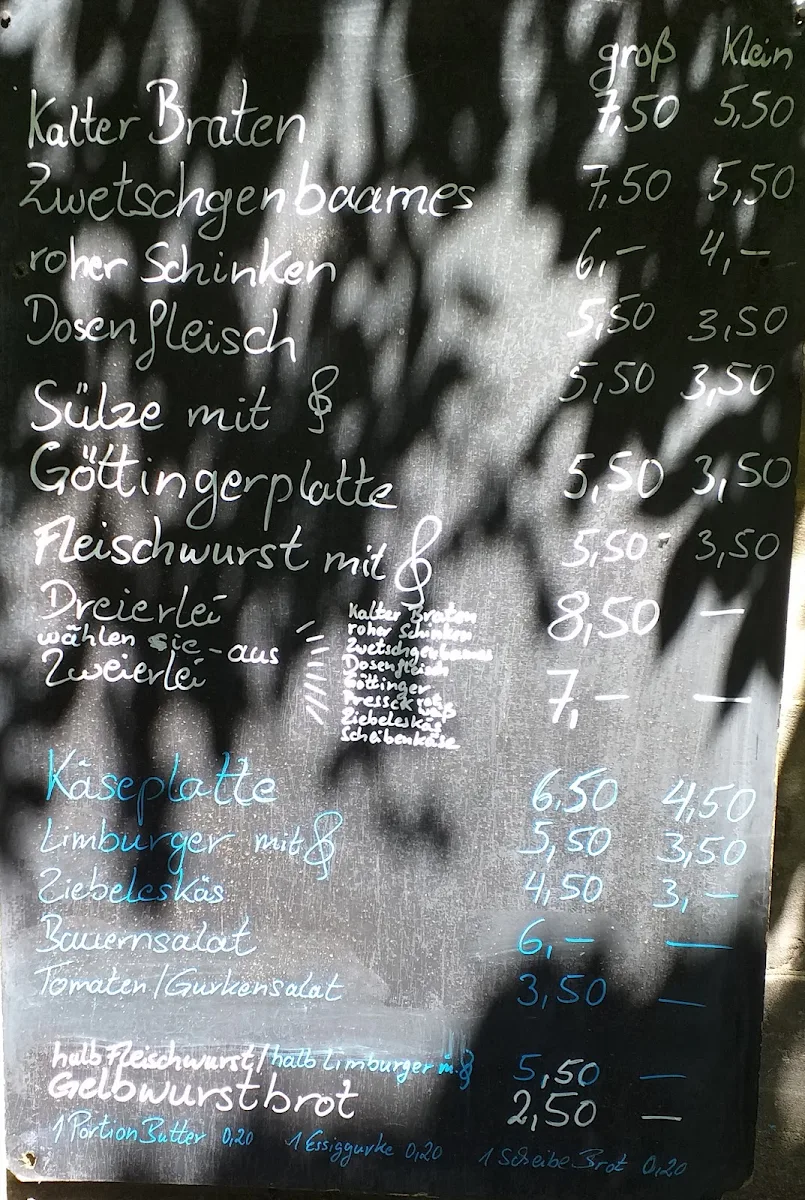 groß Klein
Kalter Braten 7,50 5,50
Zwetschgenbaames 7,50 5,50
roher Schinken 6,- 4,-
Dosenfleisch 5,50 3,50
Sülze mit 𝄞 5,50 3,50
Göttingerplatte 5,50 3,50
Fleischwurst mit 𝄞 5,50 3,50
Dreierlei 8,50 —
wählen sie - aus
Zweierlei 7,- —
Kalter Braten
roher Schinken
Zwetschgenbaames
Dosenfleisch
Göttinger
Pressck rot weiß
Ziebeleskäs
Scheibenkäse
Käseplatte 6,50 4,50
Limburger mit 𝄞 5,50 3,50
Ziebeleskäs 4,50 3,-
Bauernsalat 6,- —
Tomaten/Gurkensalat 3,50 —
halb Fleischwurst/halb Limburger m. 𝄞 5,50 —
Gelbwurstbrot 2,50 —
1 Portion Butter 0,20 1 Essiggurke 0,20 1 Scheibe Brot 0,20